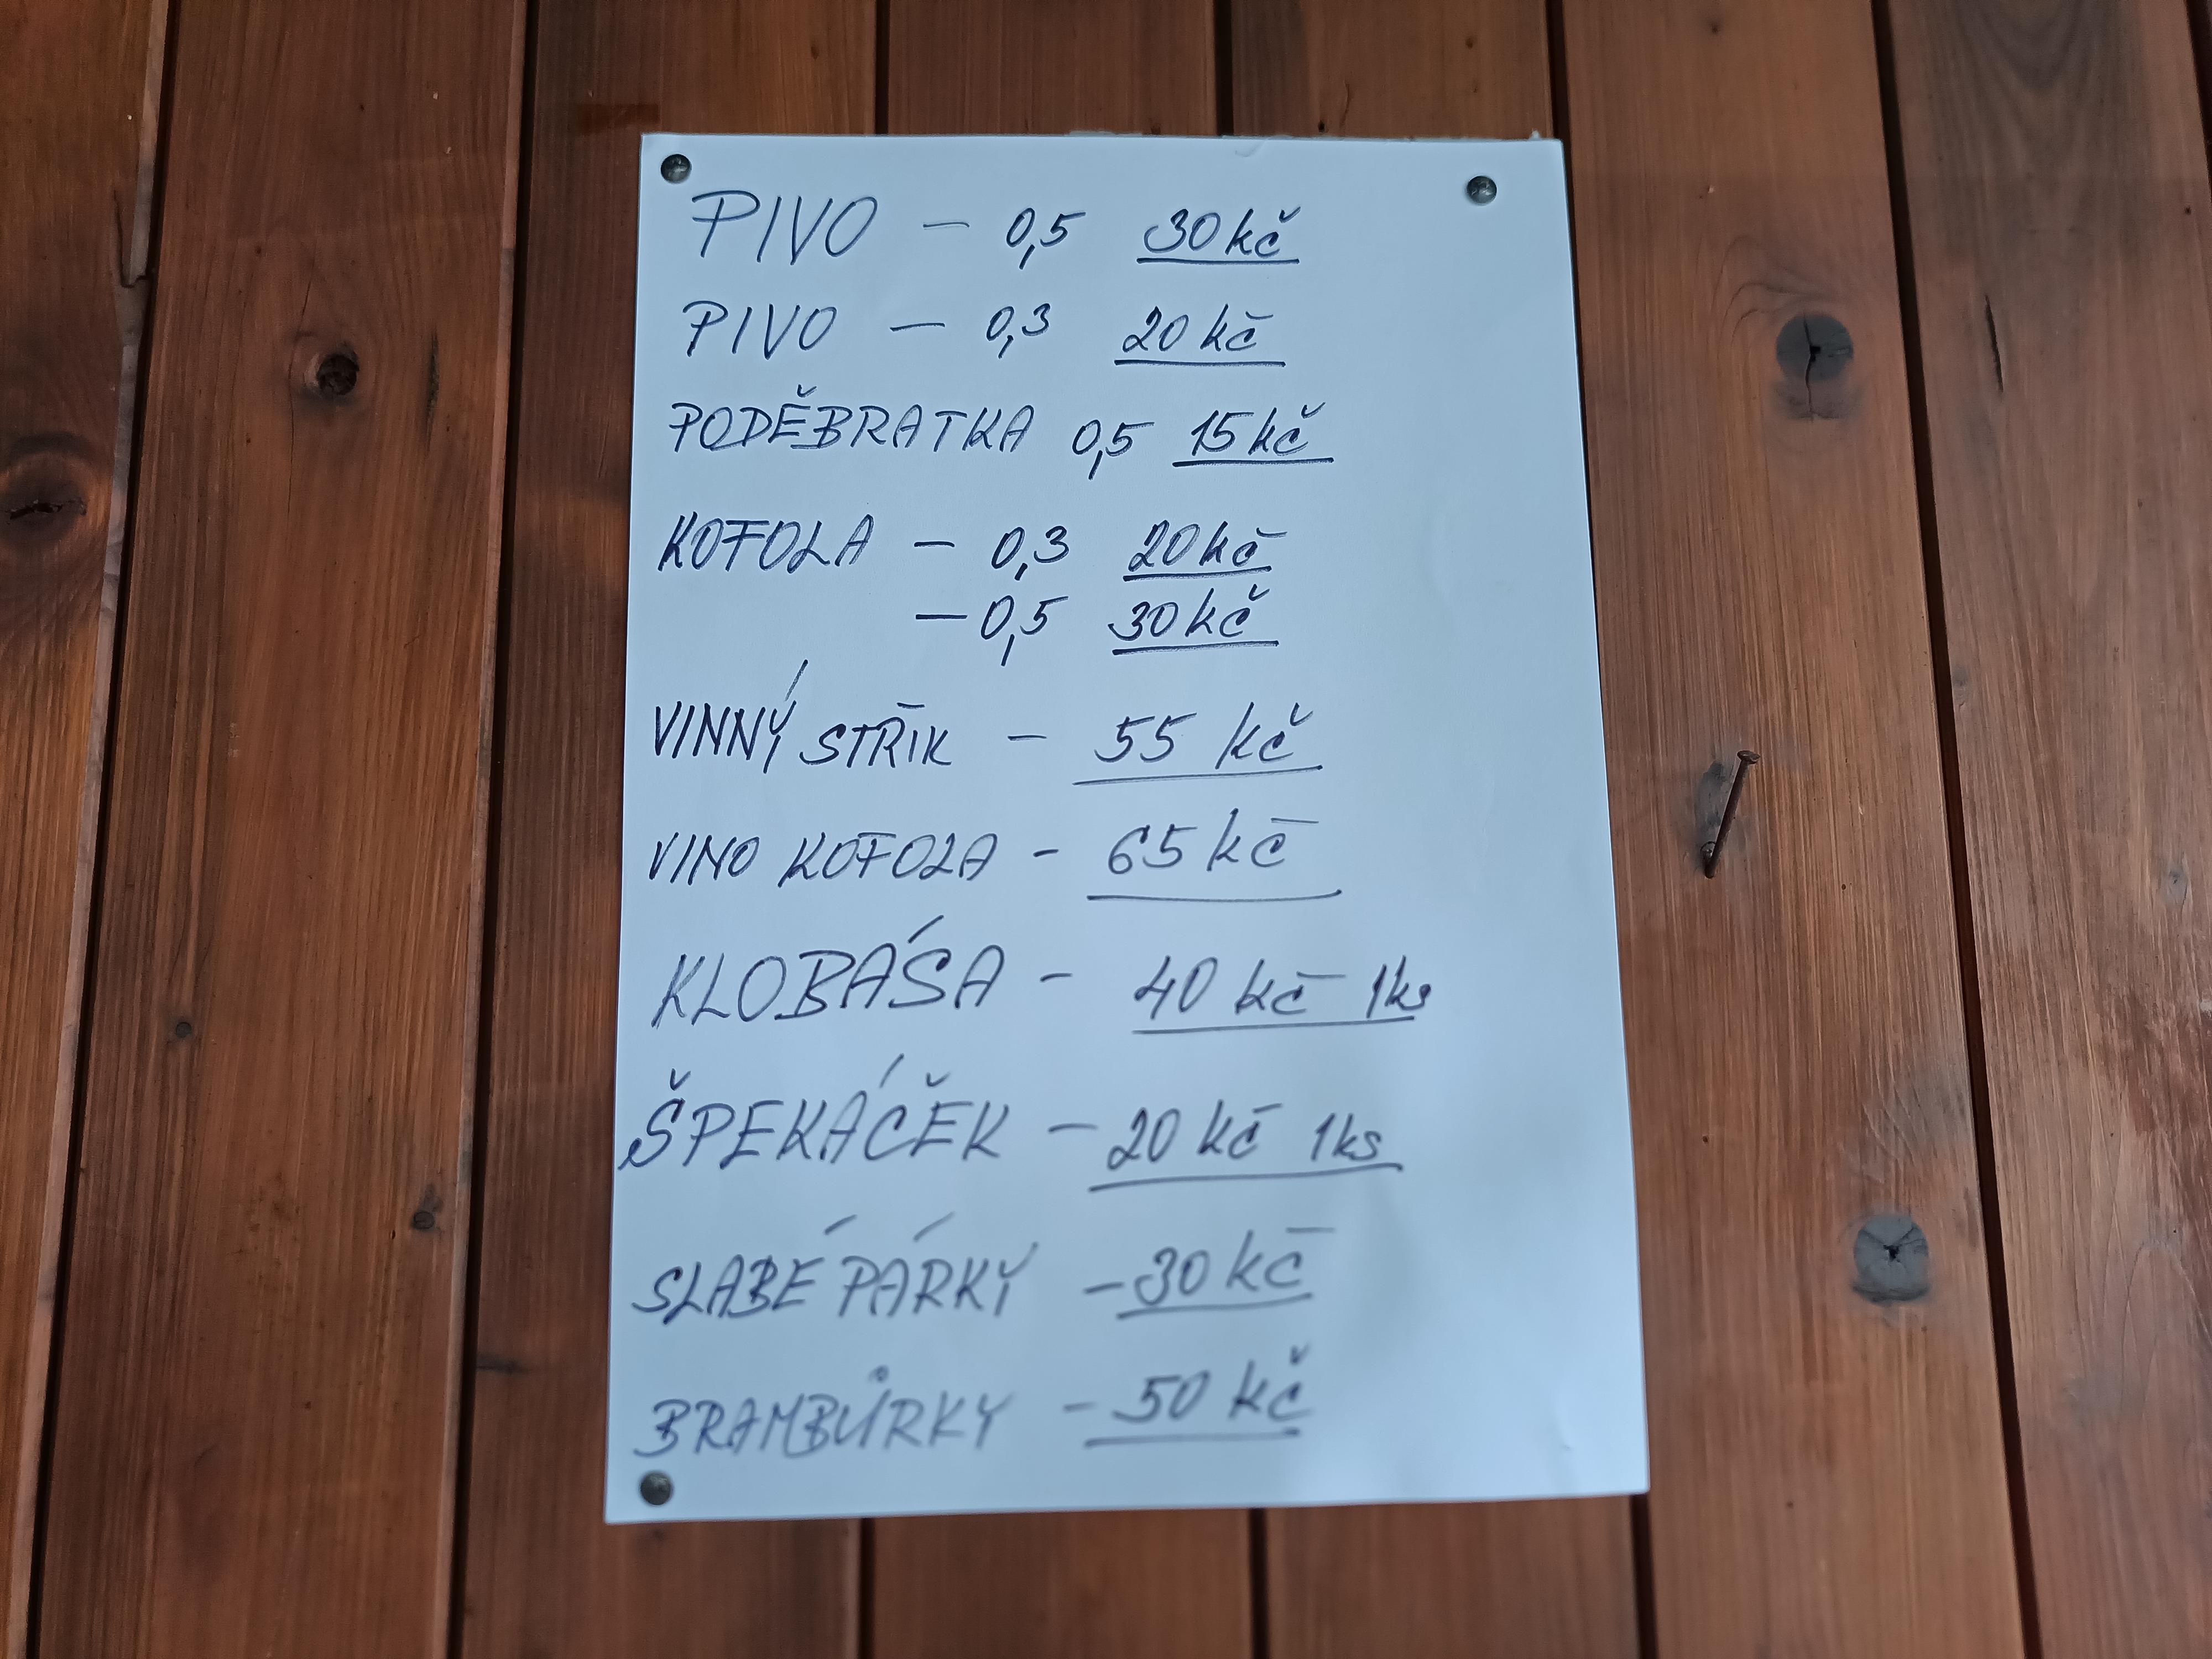 PIVO – 0,5 30 kč
PIVO – 0,3 20 kč
PODĚBRATKA 0,5 15 kč
KOFOLA – 0,3 20 kč
– 0,5 30 kč
VINNÝ STŘIK – 55 kč
VINO KOFOLA – 65 kč
KLOBÁSA – 40 kč 1ks
ŠPEKÁČEK – 20 kč 1ks
SLABÉ PÁRKY – 30 kč
BRAMBŮRKY – 50 kč